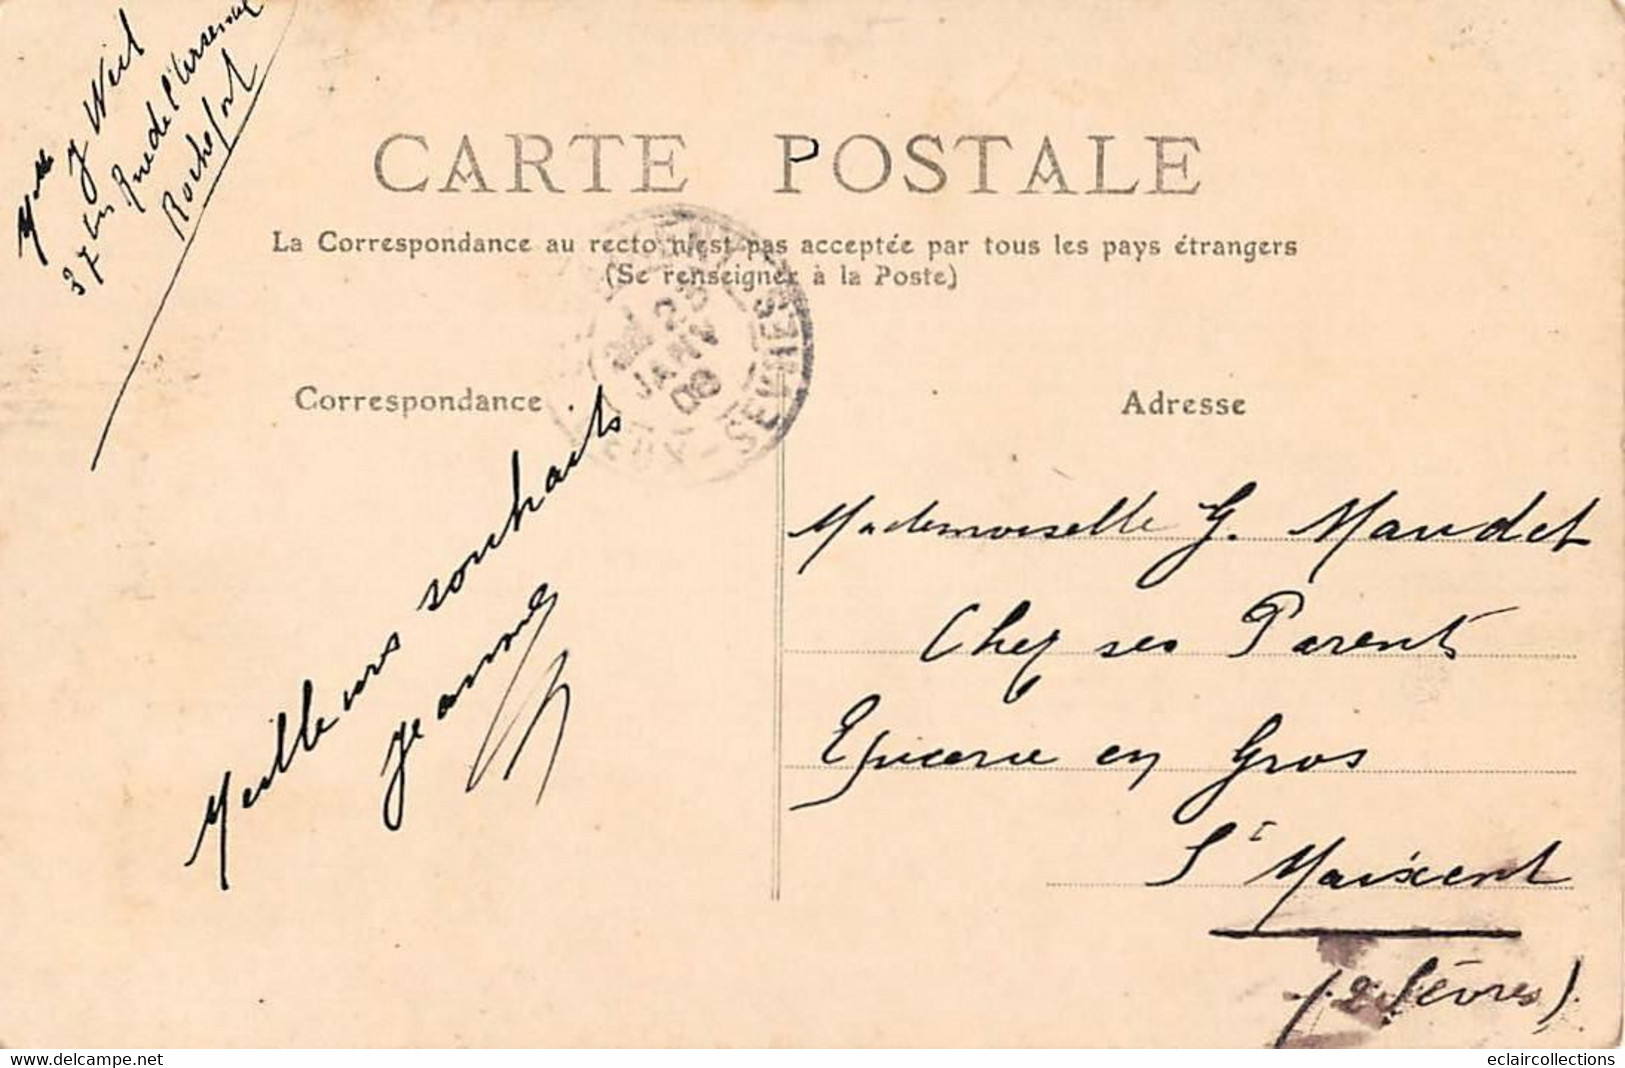 Mlle J Weil
37 bis Rue de l'Arsenal
Rochefort
CARTE POSTALE
La Correspondance au recto n'est pas acceptée par tous les pays étrangers
(Se renseigner à la Poste)
JANV
08
SEVRES
Correspondance
Adresse
Meilleurs souhaits
Jeanne
Mademoiselle G. Maudet
Chez ses Parents
Epicerie en Gros
St Maixent
(2 Sèvres)
eclaircollections